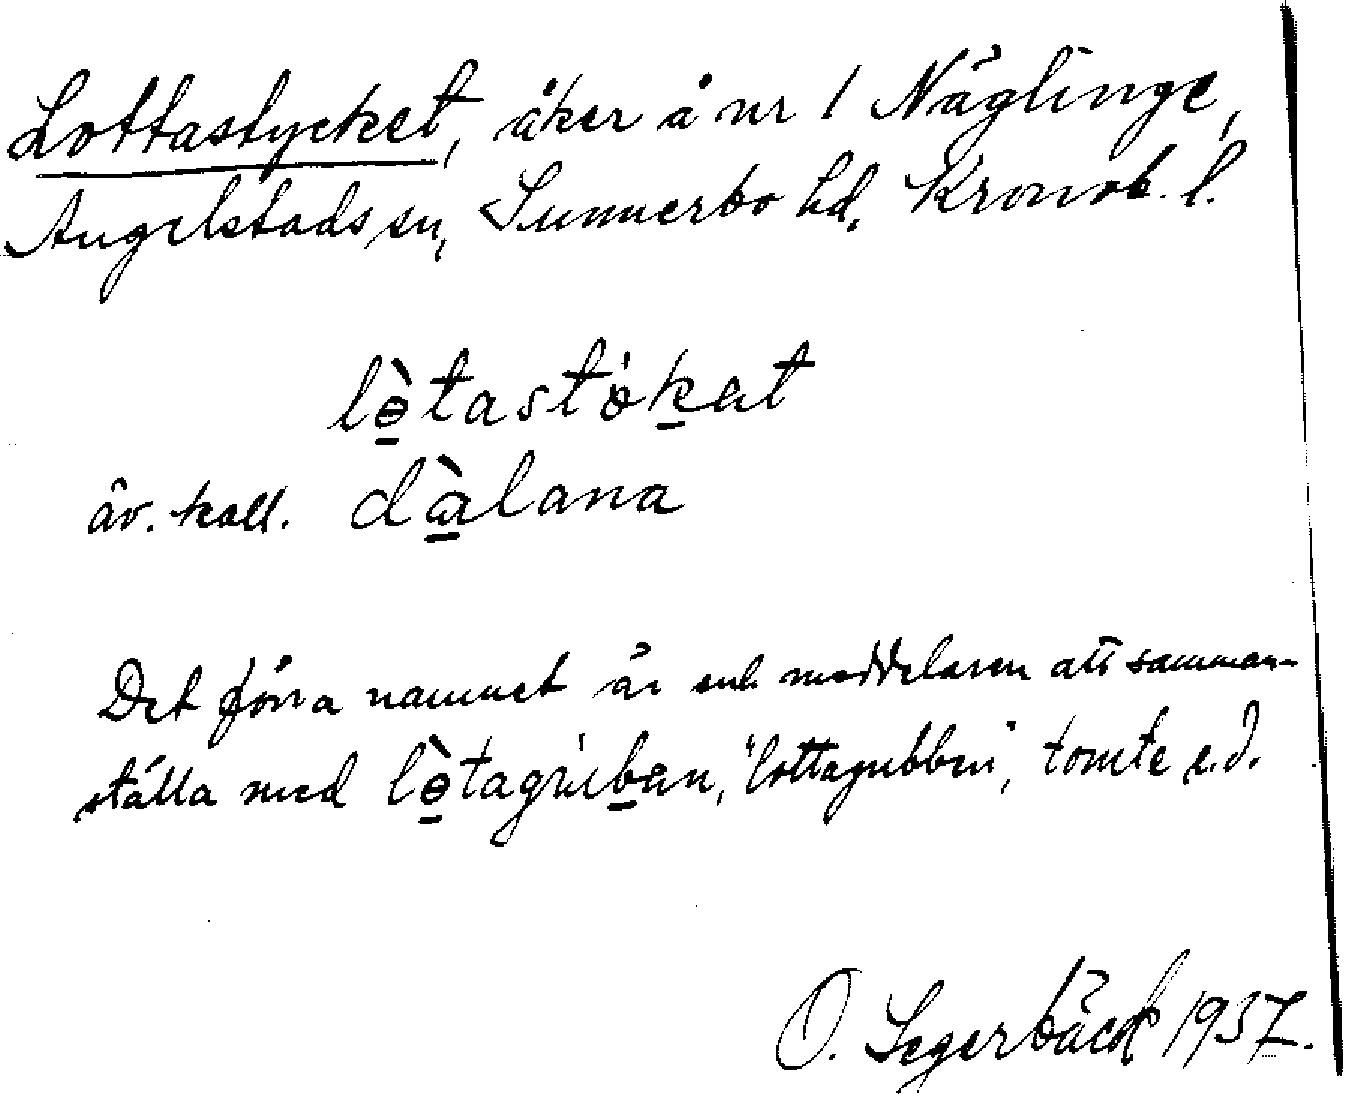 Lottastycket, åker å nr 1 Näglinge,
Angelstads sn, Sunnerbo hd, Kronob. l.
lòtastókat
äv. kall. dàlana
Det förra namnet är enl. meddelaren att samman-
ställa med lòtagúban, "lottagubben", tomte e.d.
O. Segerbäck 1937.